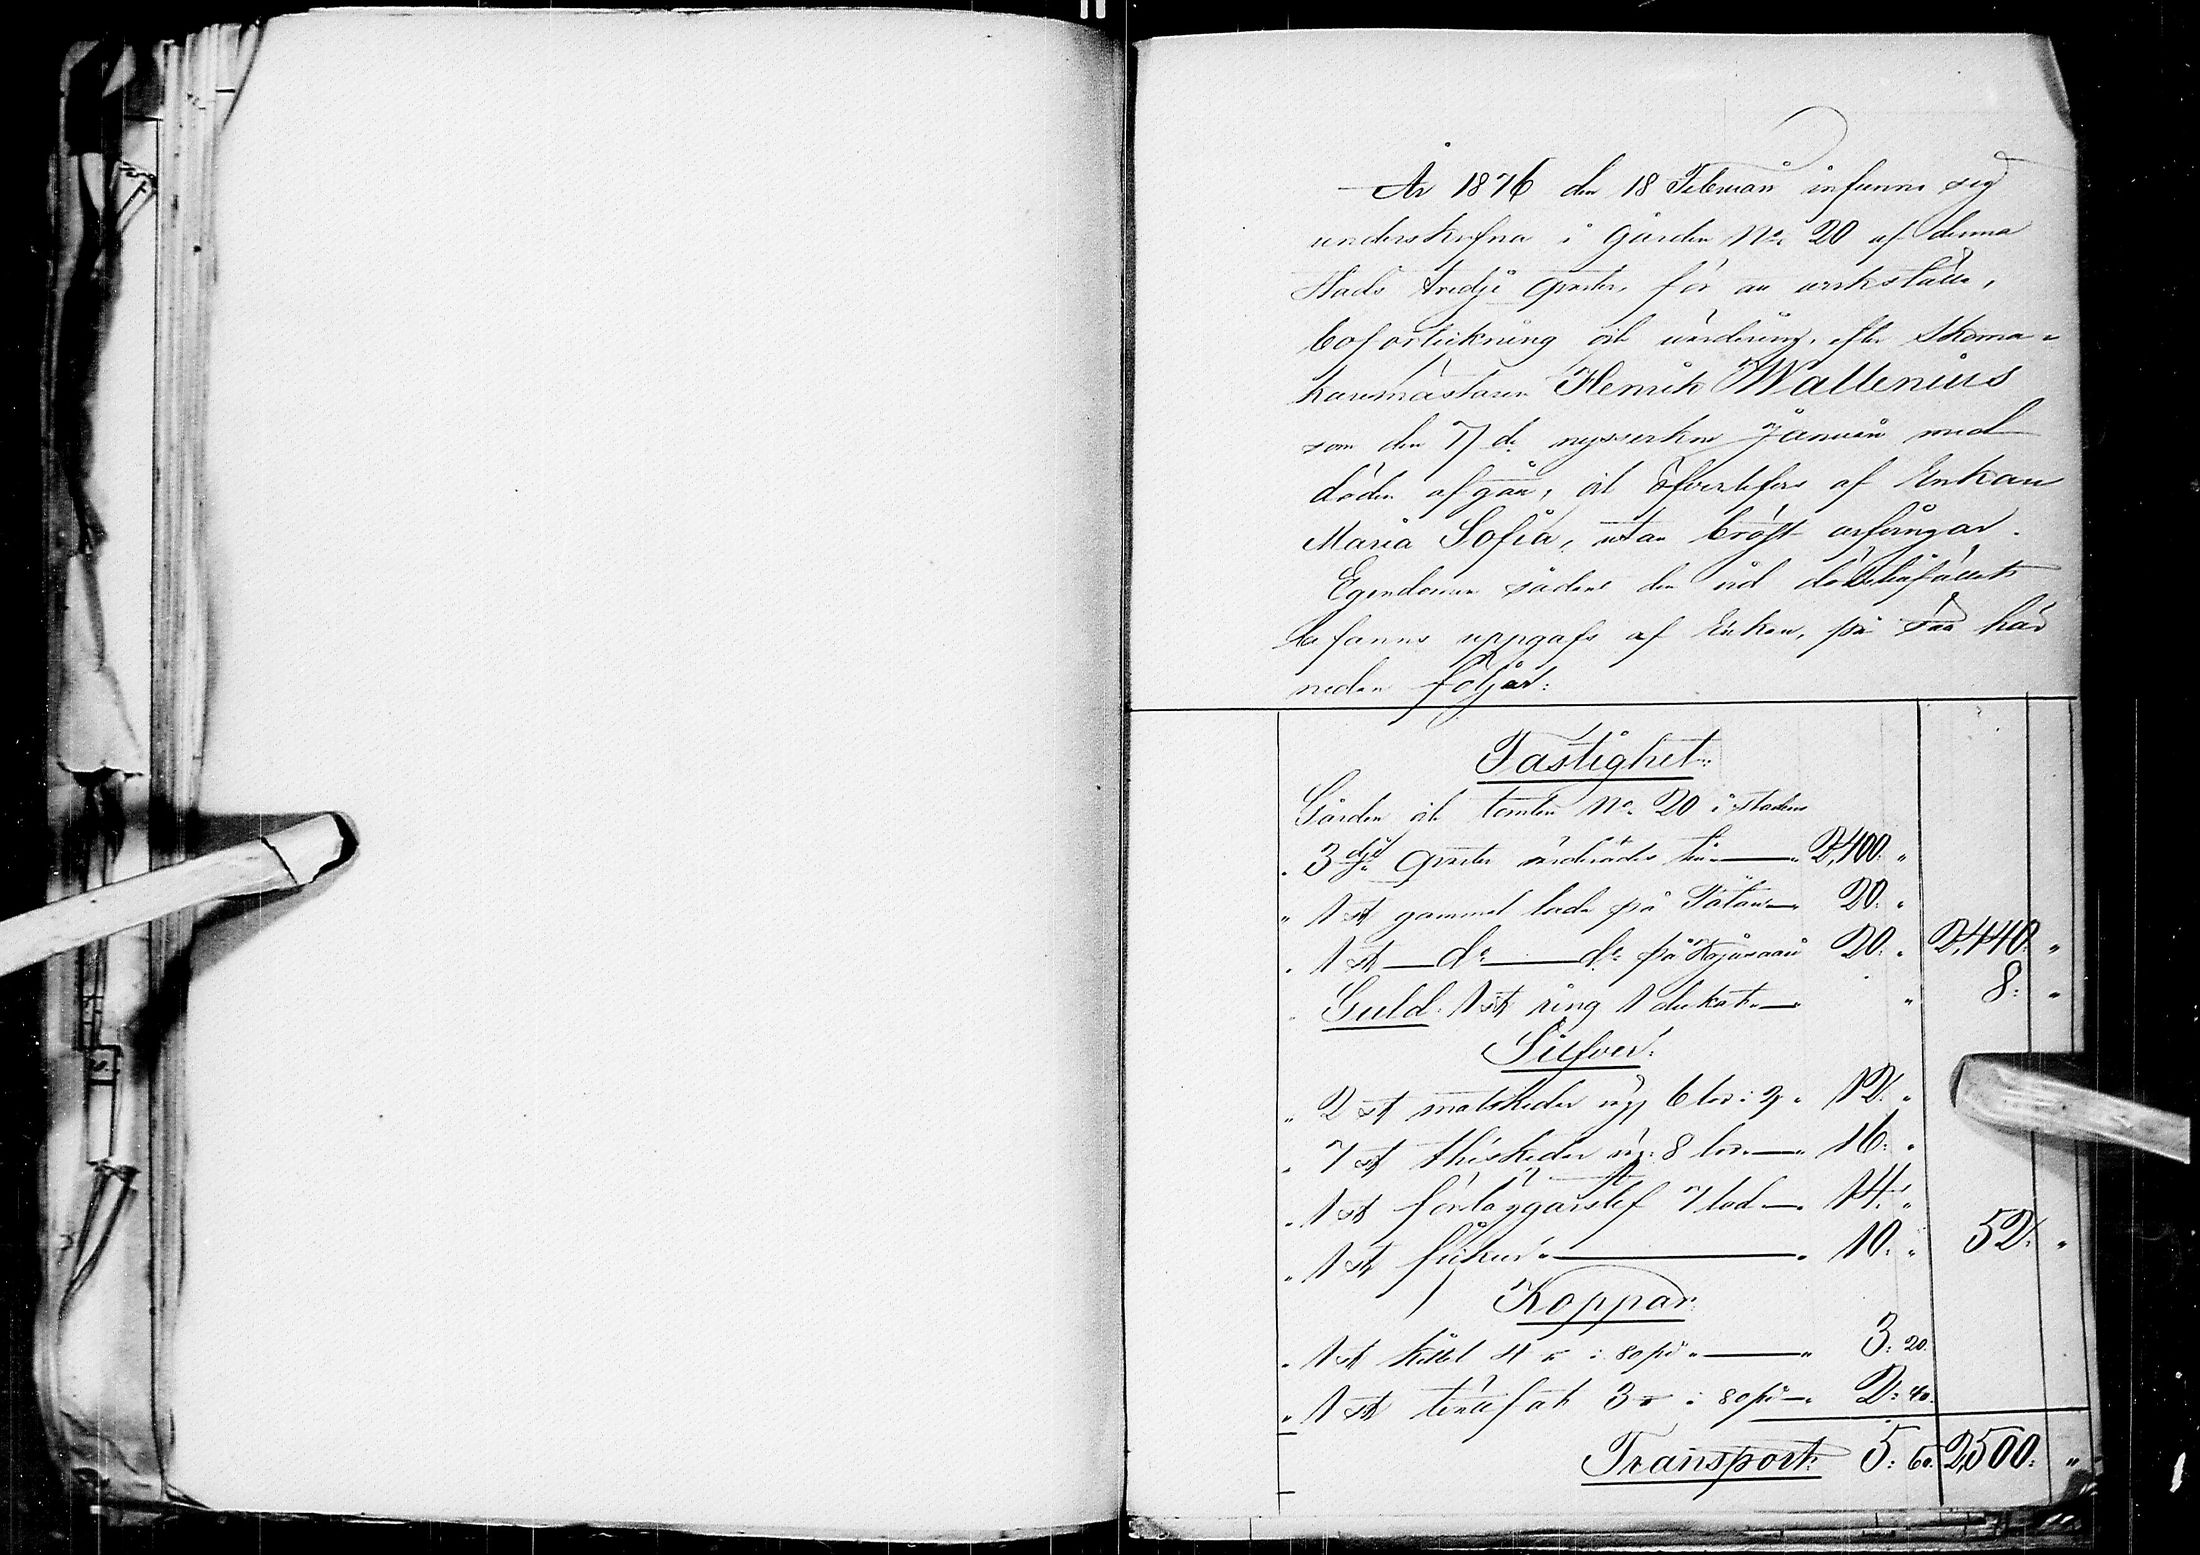 År 1876 den 18 Februari infunno sig
underskrifna i Gården No 20 af denna
Stads tredje qvarter, för att verkställa,
bouptekning och värdering, efter Skoma-
karemästaren Henrik Wallenius
som den 7de Januari med
döden afgått, och öfverlefves af Enkan
Maria Sofia, utan bröst arfvingar.
Egendomen sådan den vid dödsfallet
befanns uppgafs af Enkan, på sätt här
nedan följer:
Fastighet:
Gården och tomten No 20 i stadens
" 3dje qvarter värderades till — 2,400: "
" 1 st gammal lada på — 20: "
" 1 st — do — do på — 20: " 2,440: "
" Guld. 1 st ring 1 dukat — " 8: "
Silfver:
" 2 st matskedar väg. 6 lod: 2 " 12: "
" 7 st théskedar väg: 8 lod — 16: "
" 1 st förläggarslef 7 lod — 14: "
" 1 st — 10: " 52: "
Koppar
" 1 st kittel 4 ℔ i 80 p:i " — " 3: 20.
" 1 st fat 3 ℔ i 80 p:i — 2: 40.
Transport: 5: 60. 2,500: "